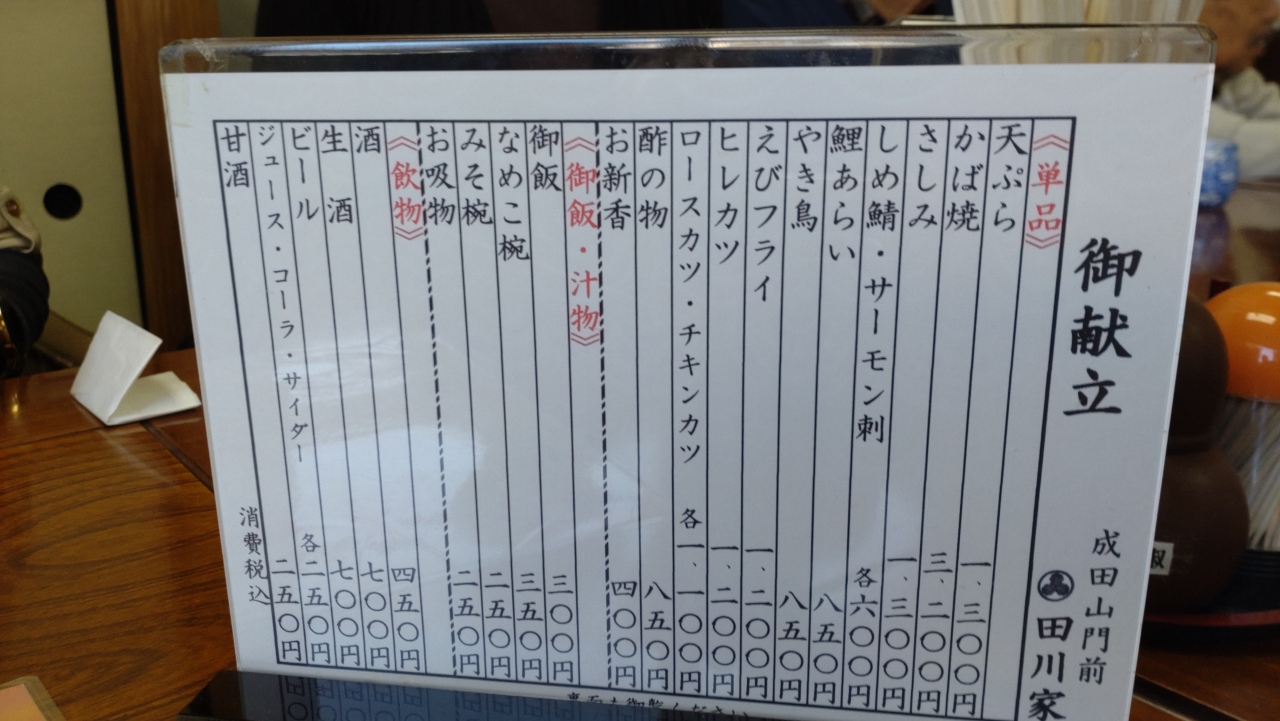 御献立
成田山門前
田川家
《単品》
天ぷら 一、三〇〇円
かば焼 三、二〇〇円
さしみ 一、三〇〇円
しめ鯖・サーモン刺 各六〇〇円
鯉あらい 八五〇円
やき鳥 八五〇円
えびフライ 一、二〇〇円
ヒレカツ 一、二〇〇円
ロースカツ・チキンカツ 各一、一〇〇円
酢の物 八五〇円
お新香 四〇〇円
《御飯・汁物》
御飯 三〇〇円
なめこ椀 三五〇円
みそ椀 二五〇円
お吸物 二五〇円
《飲物》
酒 四五〇円
生酒 七〇〇円
ビール 七〇〇円
ジュース・コーラ・サイダー 各二五〇円
甘酒 二五〇円
消費税込
裏面も御覧ください